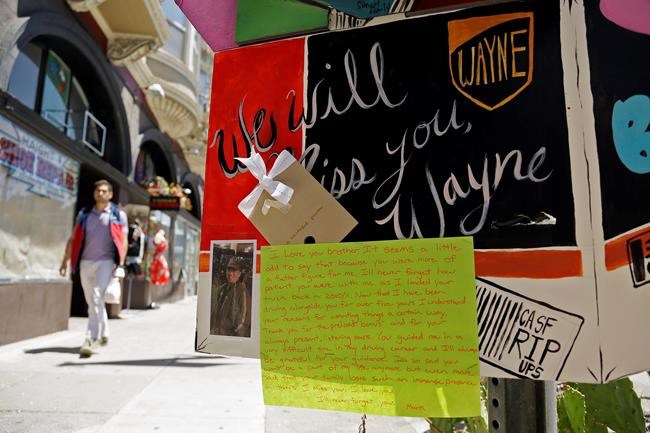 WAYNE
We will
miss you,
Wayne
I love you brother. It seems a little
odd to say that because you were more of
a father figure for me. I'll never forget how
patient you were with me as I loaded your
truck back in 2010. Now that I have been
driving alongside you for over five years I understand
your reasons for wanting things a certain way.
Thank you for the preload bonus and for your
always present, listening ears. You guided me in a
very difficult time in my driving career and I'll always
be grateful for your guidance. I'm so sad you
can't be a part of my life anymore but even more
sad your family loses such an immense presence
I miss you. I love you.
I'll never forget you. Mark
CA SF
RIP
UPS
HAIGHT